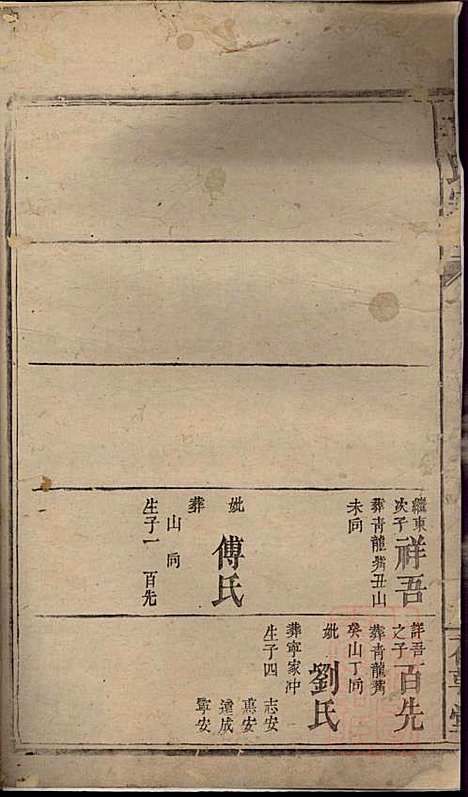 繼東
次子
祥吾
葬青龍嘴丑山
未向
妣
傅氏
葬
山 向
生子一 百先
祥吾
之子
百先
葬青龍嘴
癸山丁向
妣
劉氏
葬寧家冲
生子四 志安
惠安
達成
寧安
堂